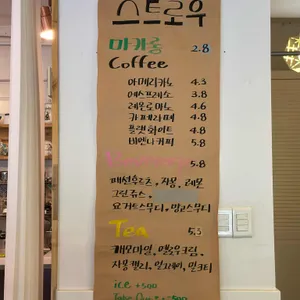 스트로우
마카롱 2.8
Coffee
아메리카노 4.3
에스프레소 3.8
레몬로마노 4.6
카페라떼 4.8
플랫화이트 4.8
비엔나커피 5.8
5.8
패션후르츠, 자몽, 레몬
그린쥬스,
요거트스무디, 망고스무디
Tea 5.5
캐모마일, 옐로우크림,
자몽밸리, 얼그레이, 밀크티
ice +500